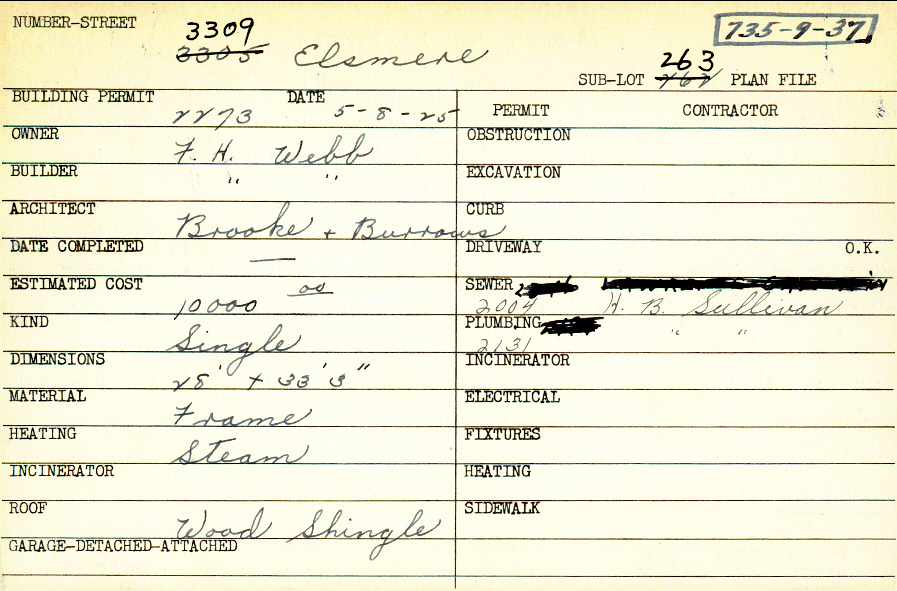 NUMBER-STREET 3309 735-9-37
3305 Elsmere
SUB-LOT 263 PLAN FILE
BUILDING PERMIT 2273 DATE 5-8-25 PERMIT CONTRACTOR
OWNER F. H. Webb OBSTRUCTION
BUILDER " " EXCAVATION
ARCHITECT Brooke + Burrows CURB
DATE COMPLETED — DRIVEWAY O.K.
ESTIMATED COST 10000 00 SEWER 2004 H. B. Sullivan
KIND Single PLUMBING 2131 " "
DIMENSIONS 28' + 33' 3" INCINERATOR
MATERIAL Frame ELECTRICAL
HEATING Steam FIXTURES
INCINERATOR HEATING
ROOF Wood Shingle SIDEWALK
GARAGE-DETACHED-ATTACHED